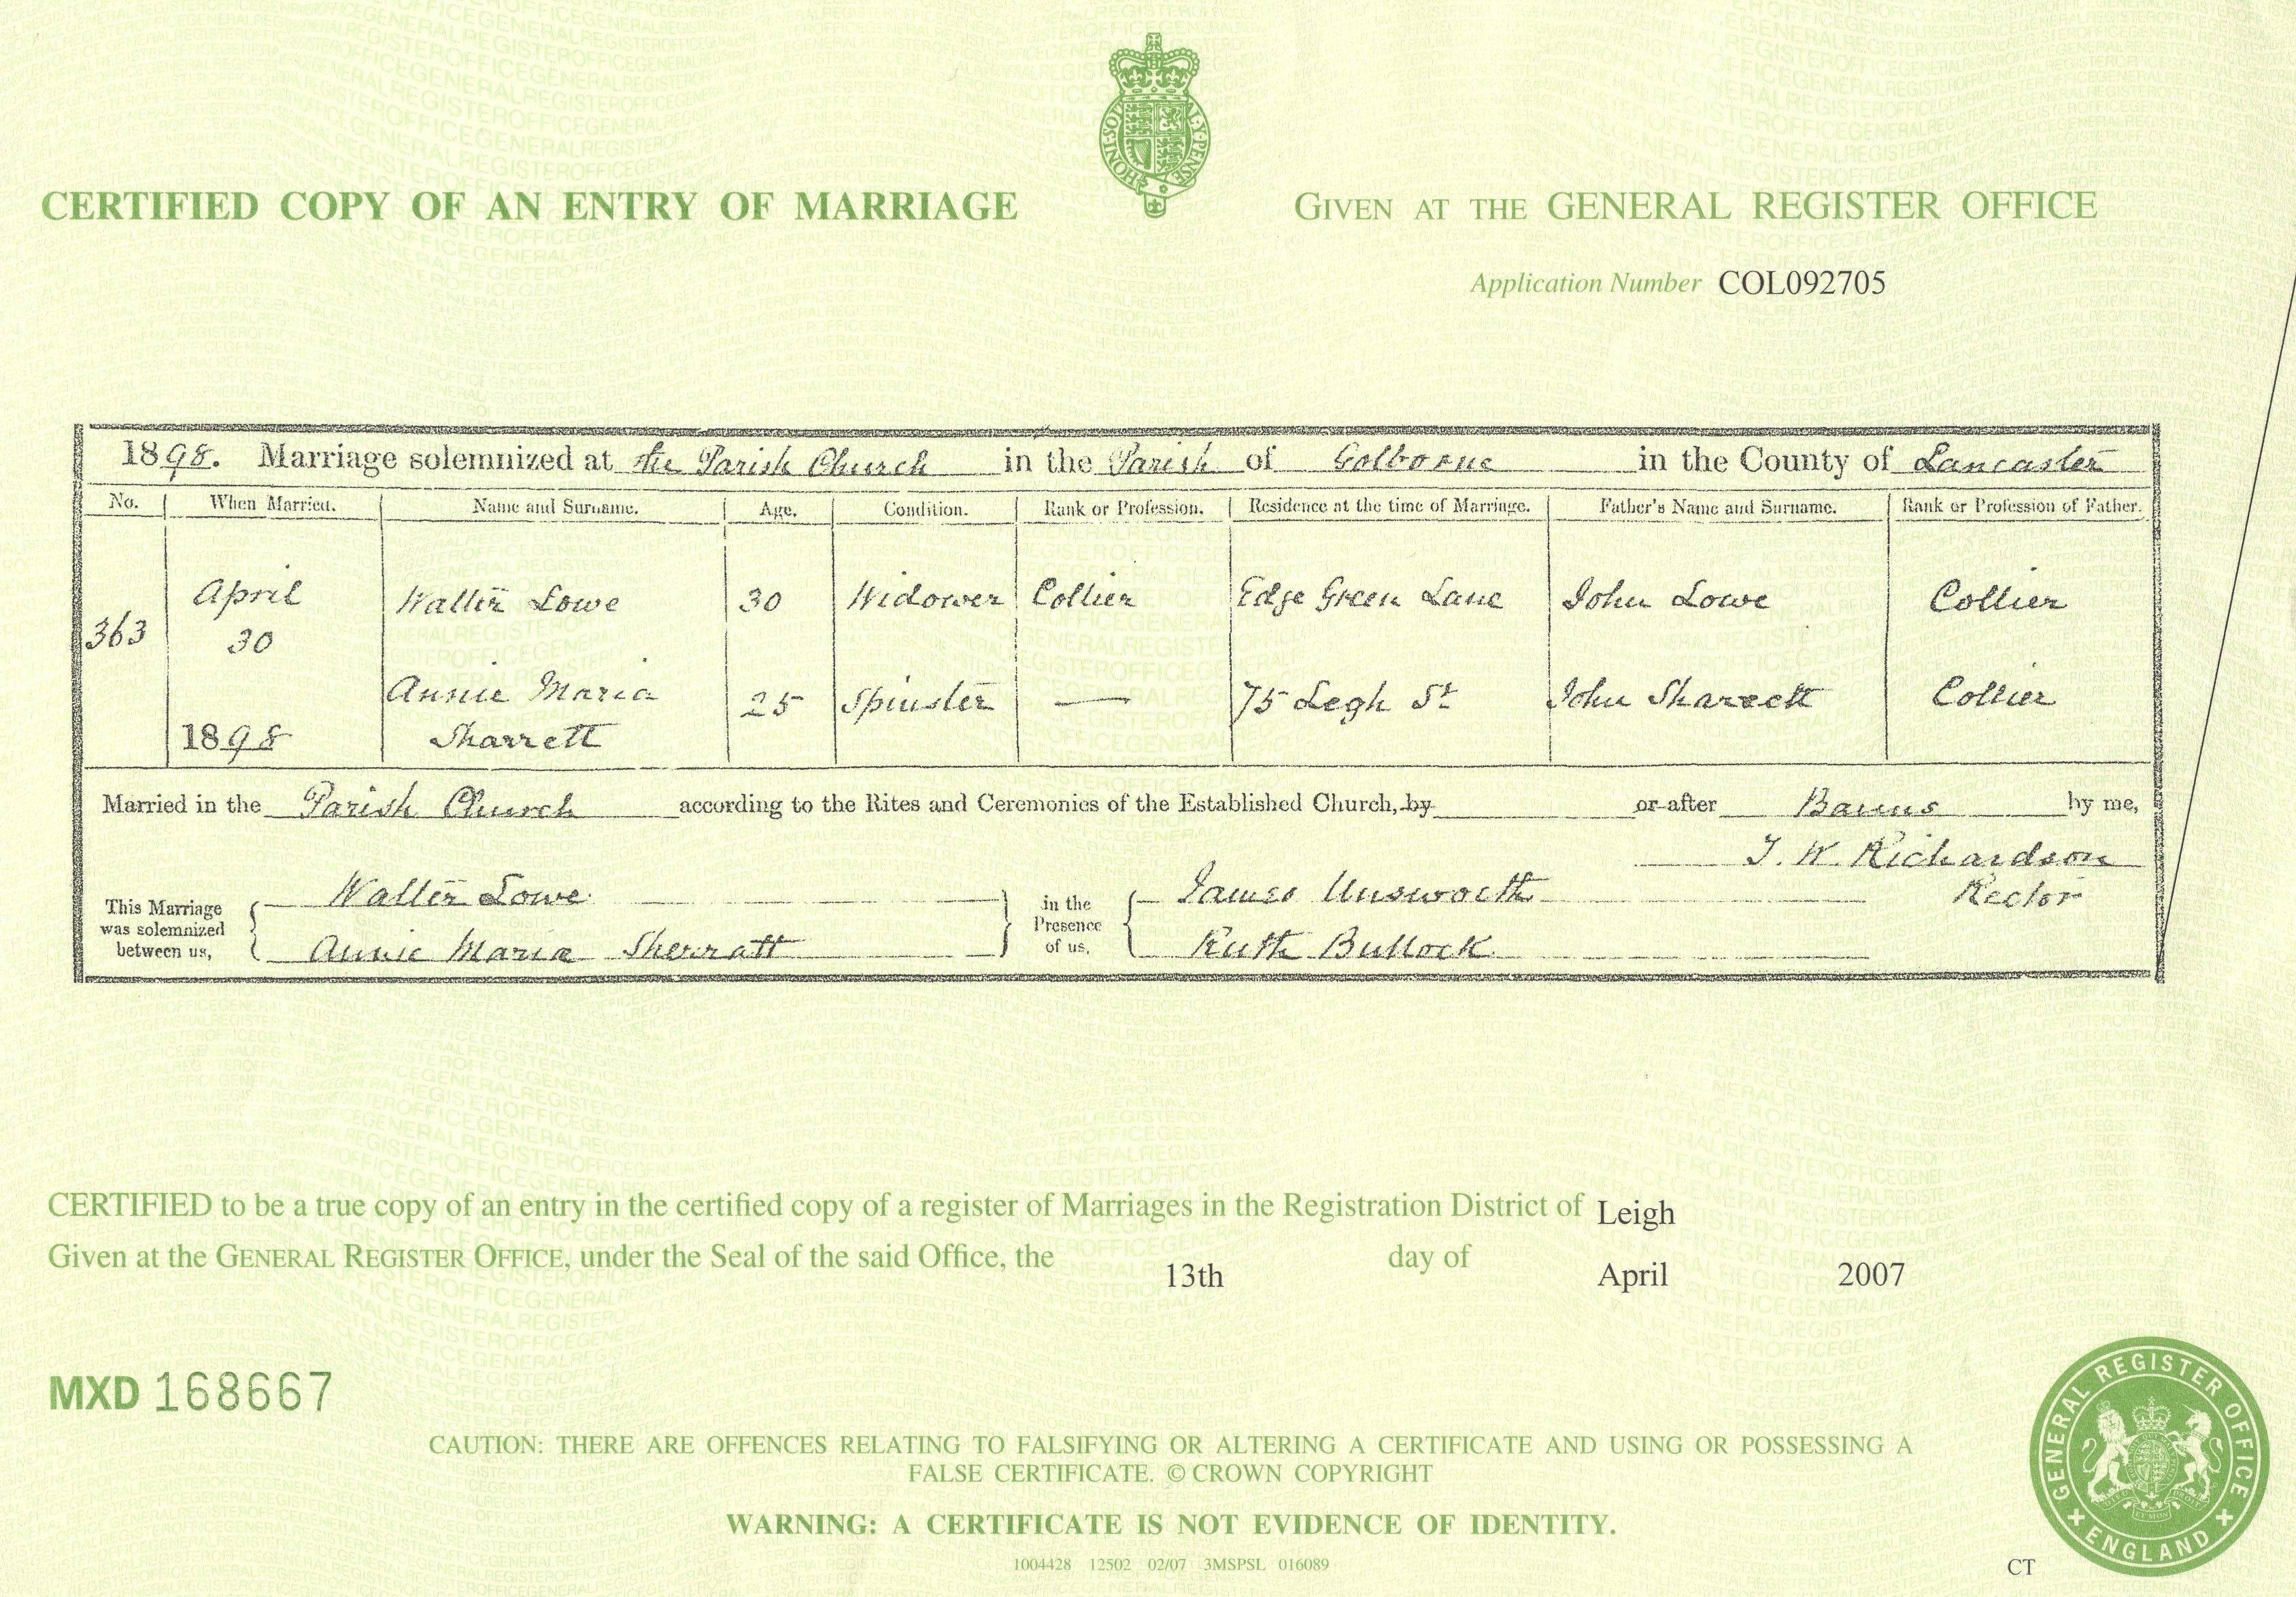 CERTIFIED COPY OF AN ENTRY OF MARRIAGE
GIVEN AT THE GENERAL REGISTER OFFICE
Application Number COL092705
1898. Marriage solemnized at the Parish Church in the Parish of Golborne in the County of Lancaster
No. When Married. Name and Surname. Age. Condition. Rank or Profession. Residence at the time of Marriage. Father's Name and Surname. Rank or Profession of Father.
363 April 30 1898 Walter Lowe 30 Widower Collier Edge Green Lane John Lowe Collier
Annie Maria Sharrett 25 Spinster — 75 Legh St John Sharrett Collier
Married in the Parish Church according to the Rites and Ceremonies of the Established Church, by or after Banns by me,
T. W. Richardson
Rector
This Marriage was solemnized between us, Walter Lowe Annie Maria Sherratt
in the Presence of us, James Unsworth Ruth Bullock
CERTIFIED to be a true copy of an entry in the certified copy of a register of Marriages in the Registration District of Leigh
Given at the GENERAL REGISTER OFFICE, under the Seal of the said Office, the 13th day of April 2007
MXD 168667
CAUTION: THERE ARE OFFENCES RELATING TO FALSIFYING OR ALTERING A CERTIFICATE AND USING OR POSSESSING A
FALSE CERTIFICATE. © CROWN COPYRIGHT
WARNING: A CERTIFICATE IS NOT EVIDENCE OF IDENTITY.
1004428 12502 02/07 3MSPSL 016089
CT
GENERAL REGISTER OFFICE
ENGLAND